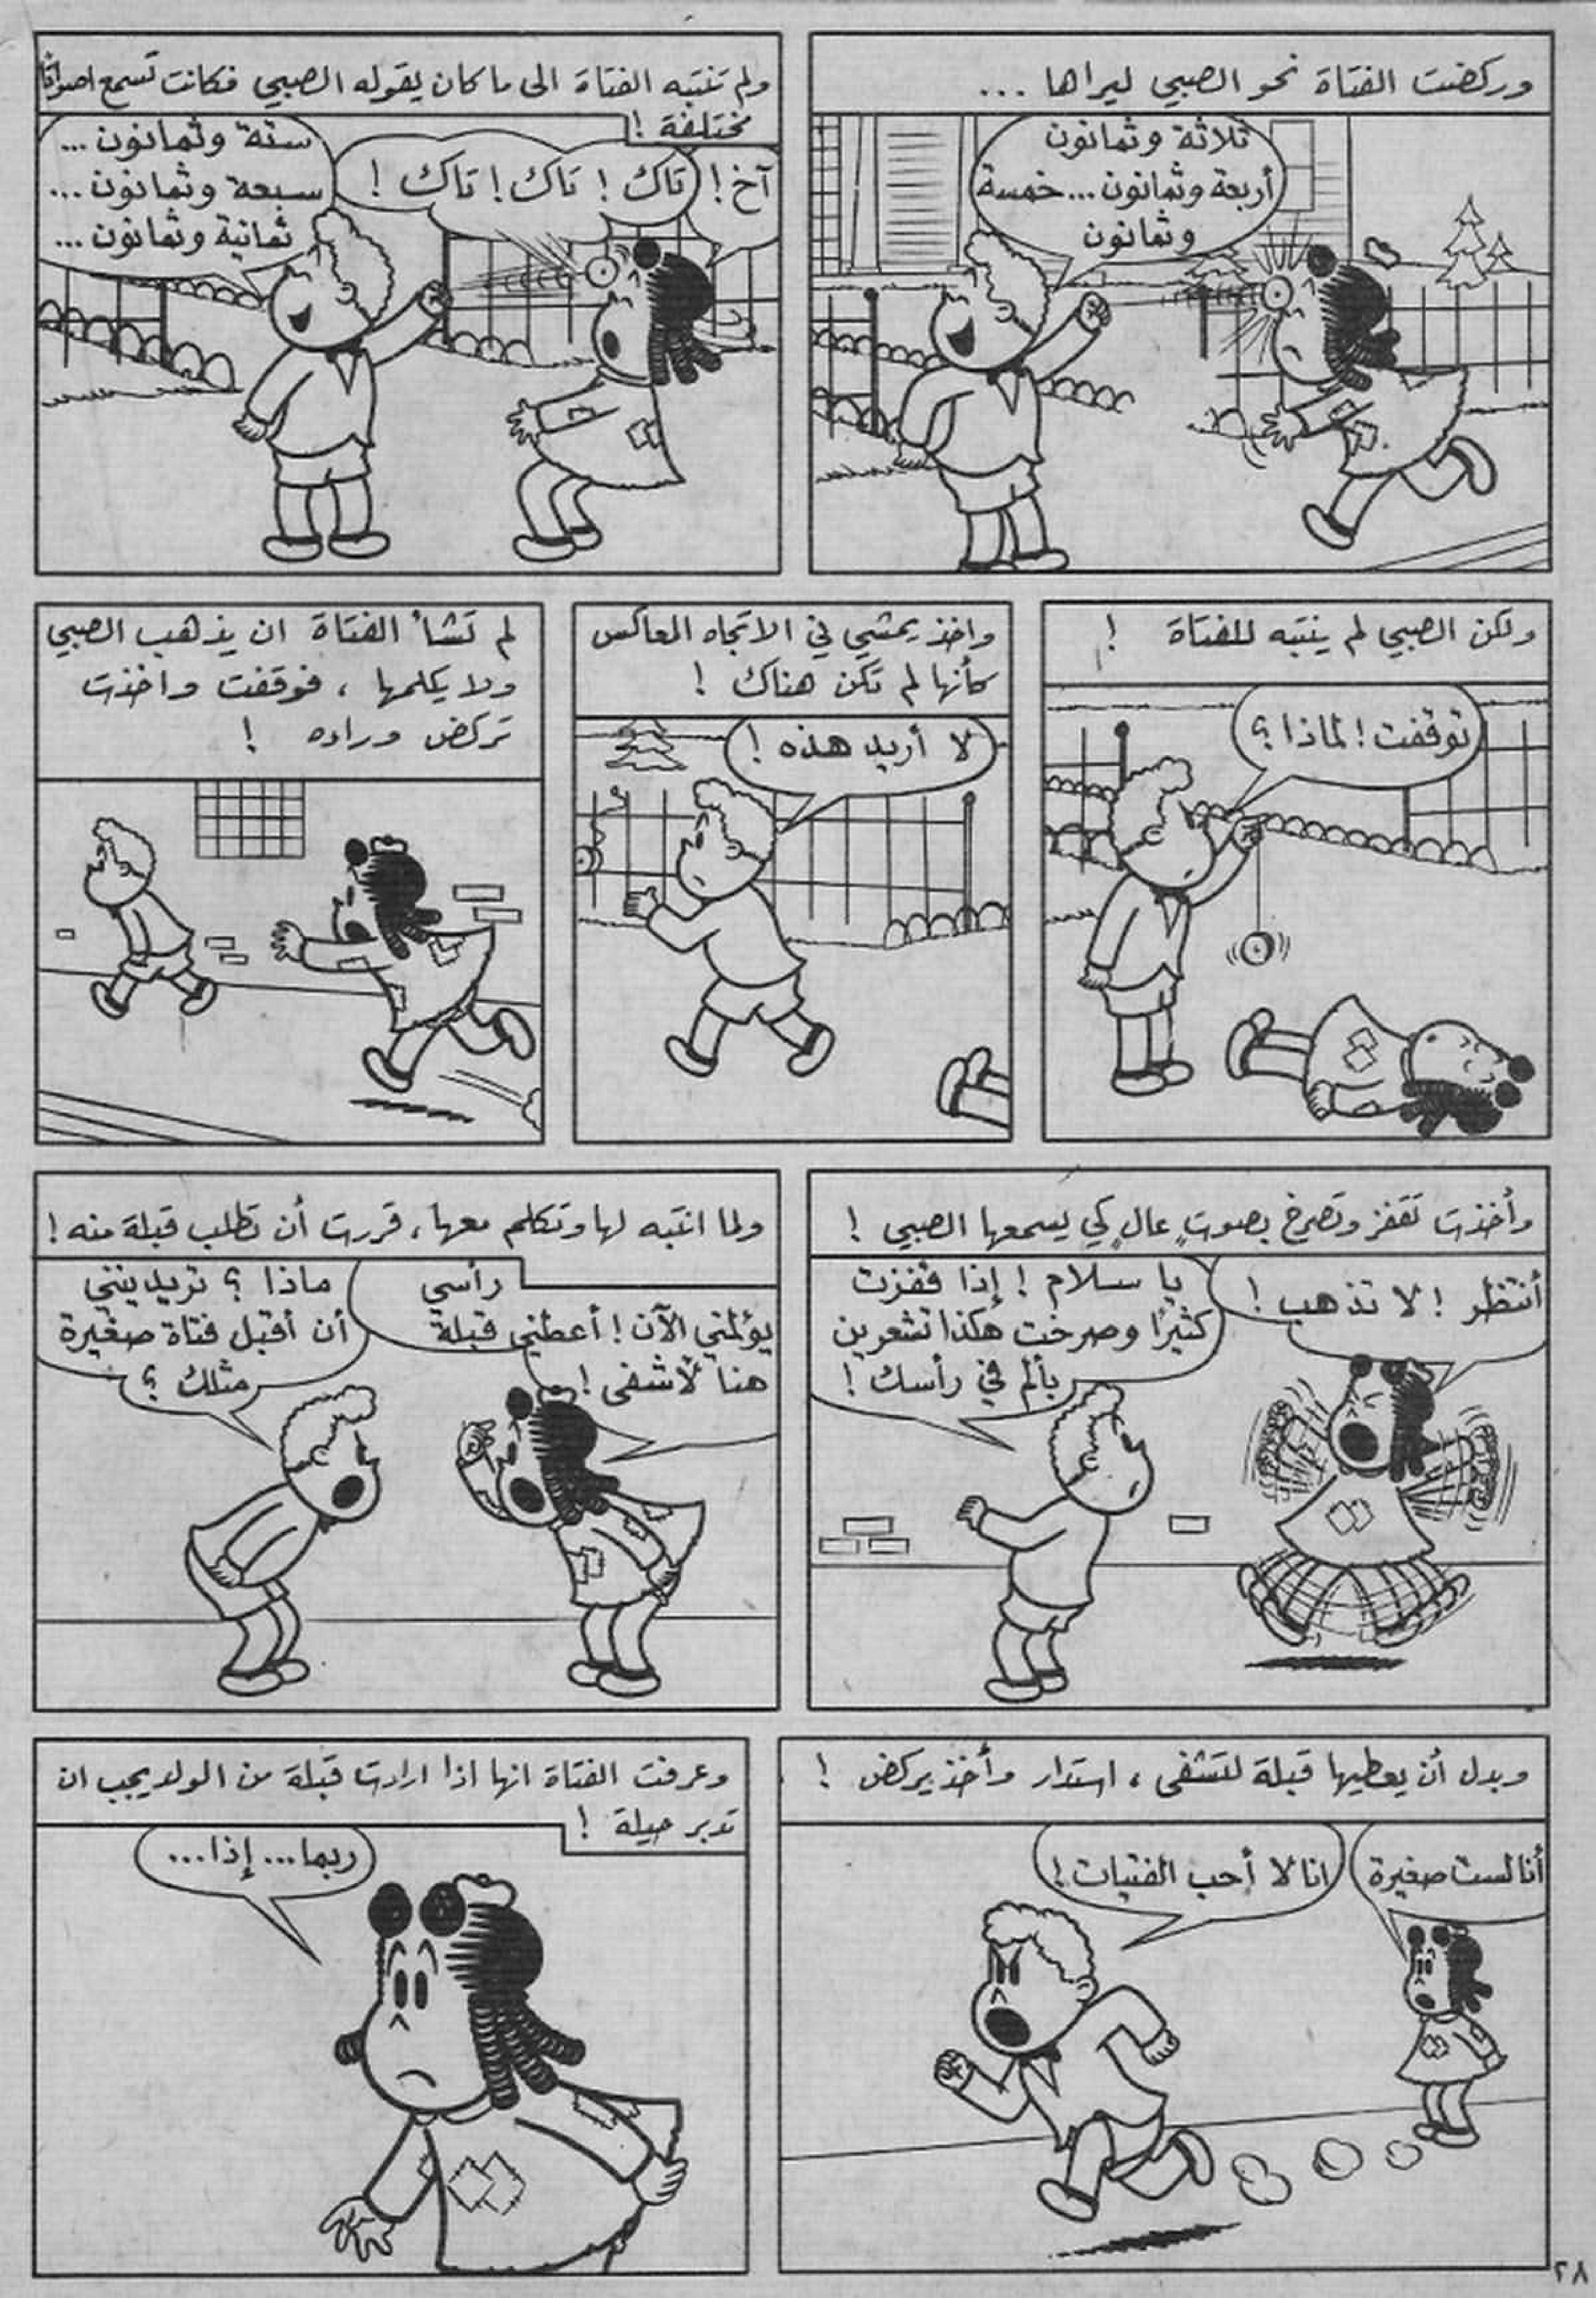 وركضت الفتاة نحو الصبي ليراها ...
ثلاثة وثمانون
أربعة وثمانون... خمسة
وثمانون
ولم تنتبه الفتاة الى ما كان يقوله الصبي فكانت تسمع اصواتًا
مختلفة !
آخ !
تاك ! تاك ! تاك !
ستة وثمانون ...
سبعة وثمانون ...
ثمانية وثمانون ...
ولكن الصبي لم ينتبه للفتاة !
توقفت ! لماذا ؟
واخذ يمشي في الاتجاه المعاكس
كأنها لم تكن هناك !
لا أريد هذه !
لم تشأ الفتاة ان يذهب الصبي
ولا يكلمها ، فوقفت واخذت
تركض وراءه !
وأخذت تقفز وتصرخ بصوتٍ عالٍ كي يسمعها الصبي !
أنتظر ! لا تذهب !
يا سلام ! إذا قفزت
كثيرًا وصرخت هكذا تشعرين
بألم في رأسك !
ولما انتبه لها وتكلم معها ، قررت أن تطلب قبلة منه !
رأسي
يؤلمني الآن ! أعطني قبلة
هنا لأشفى !
ماذا ؟ تريدينني
أن أقبل فتاة صغيرة
مثلك ؟
وبدل أن يعطيها قبلة لتشفى ، استدار وأخذ يركض !
أنا لست صغيرة
انا لا أحب الفتيات !
وعرفت الفتاة انها اذا ارادت قبلة من الولد يجب ان
تدبر حيلة !
ربما... إذا...
٢٨